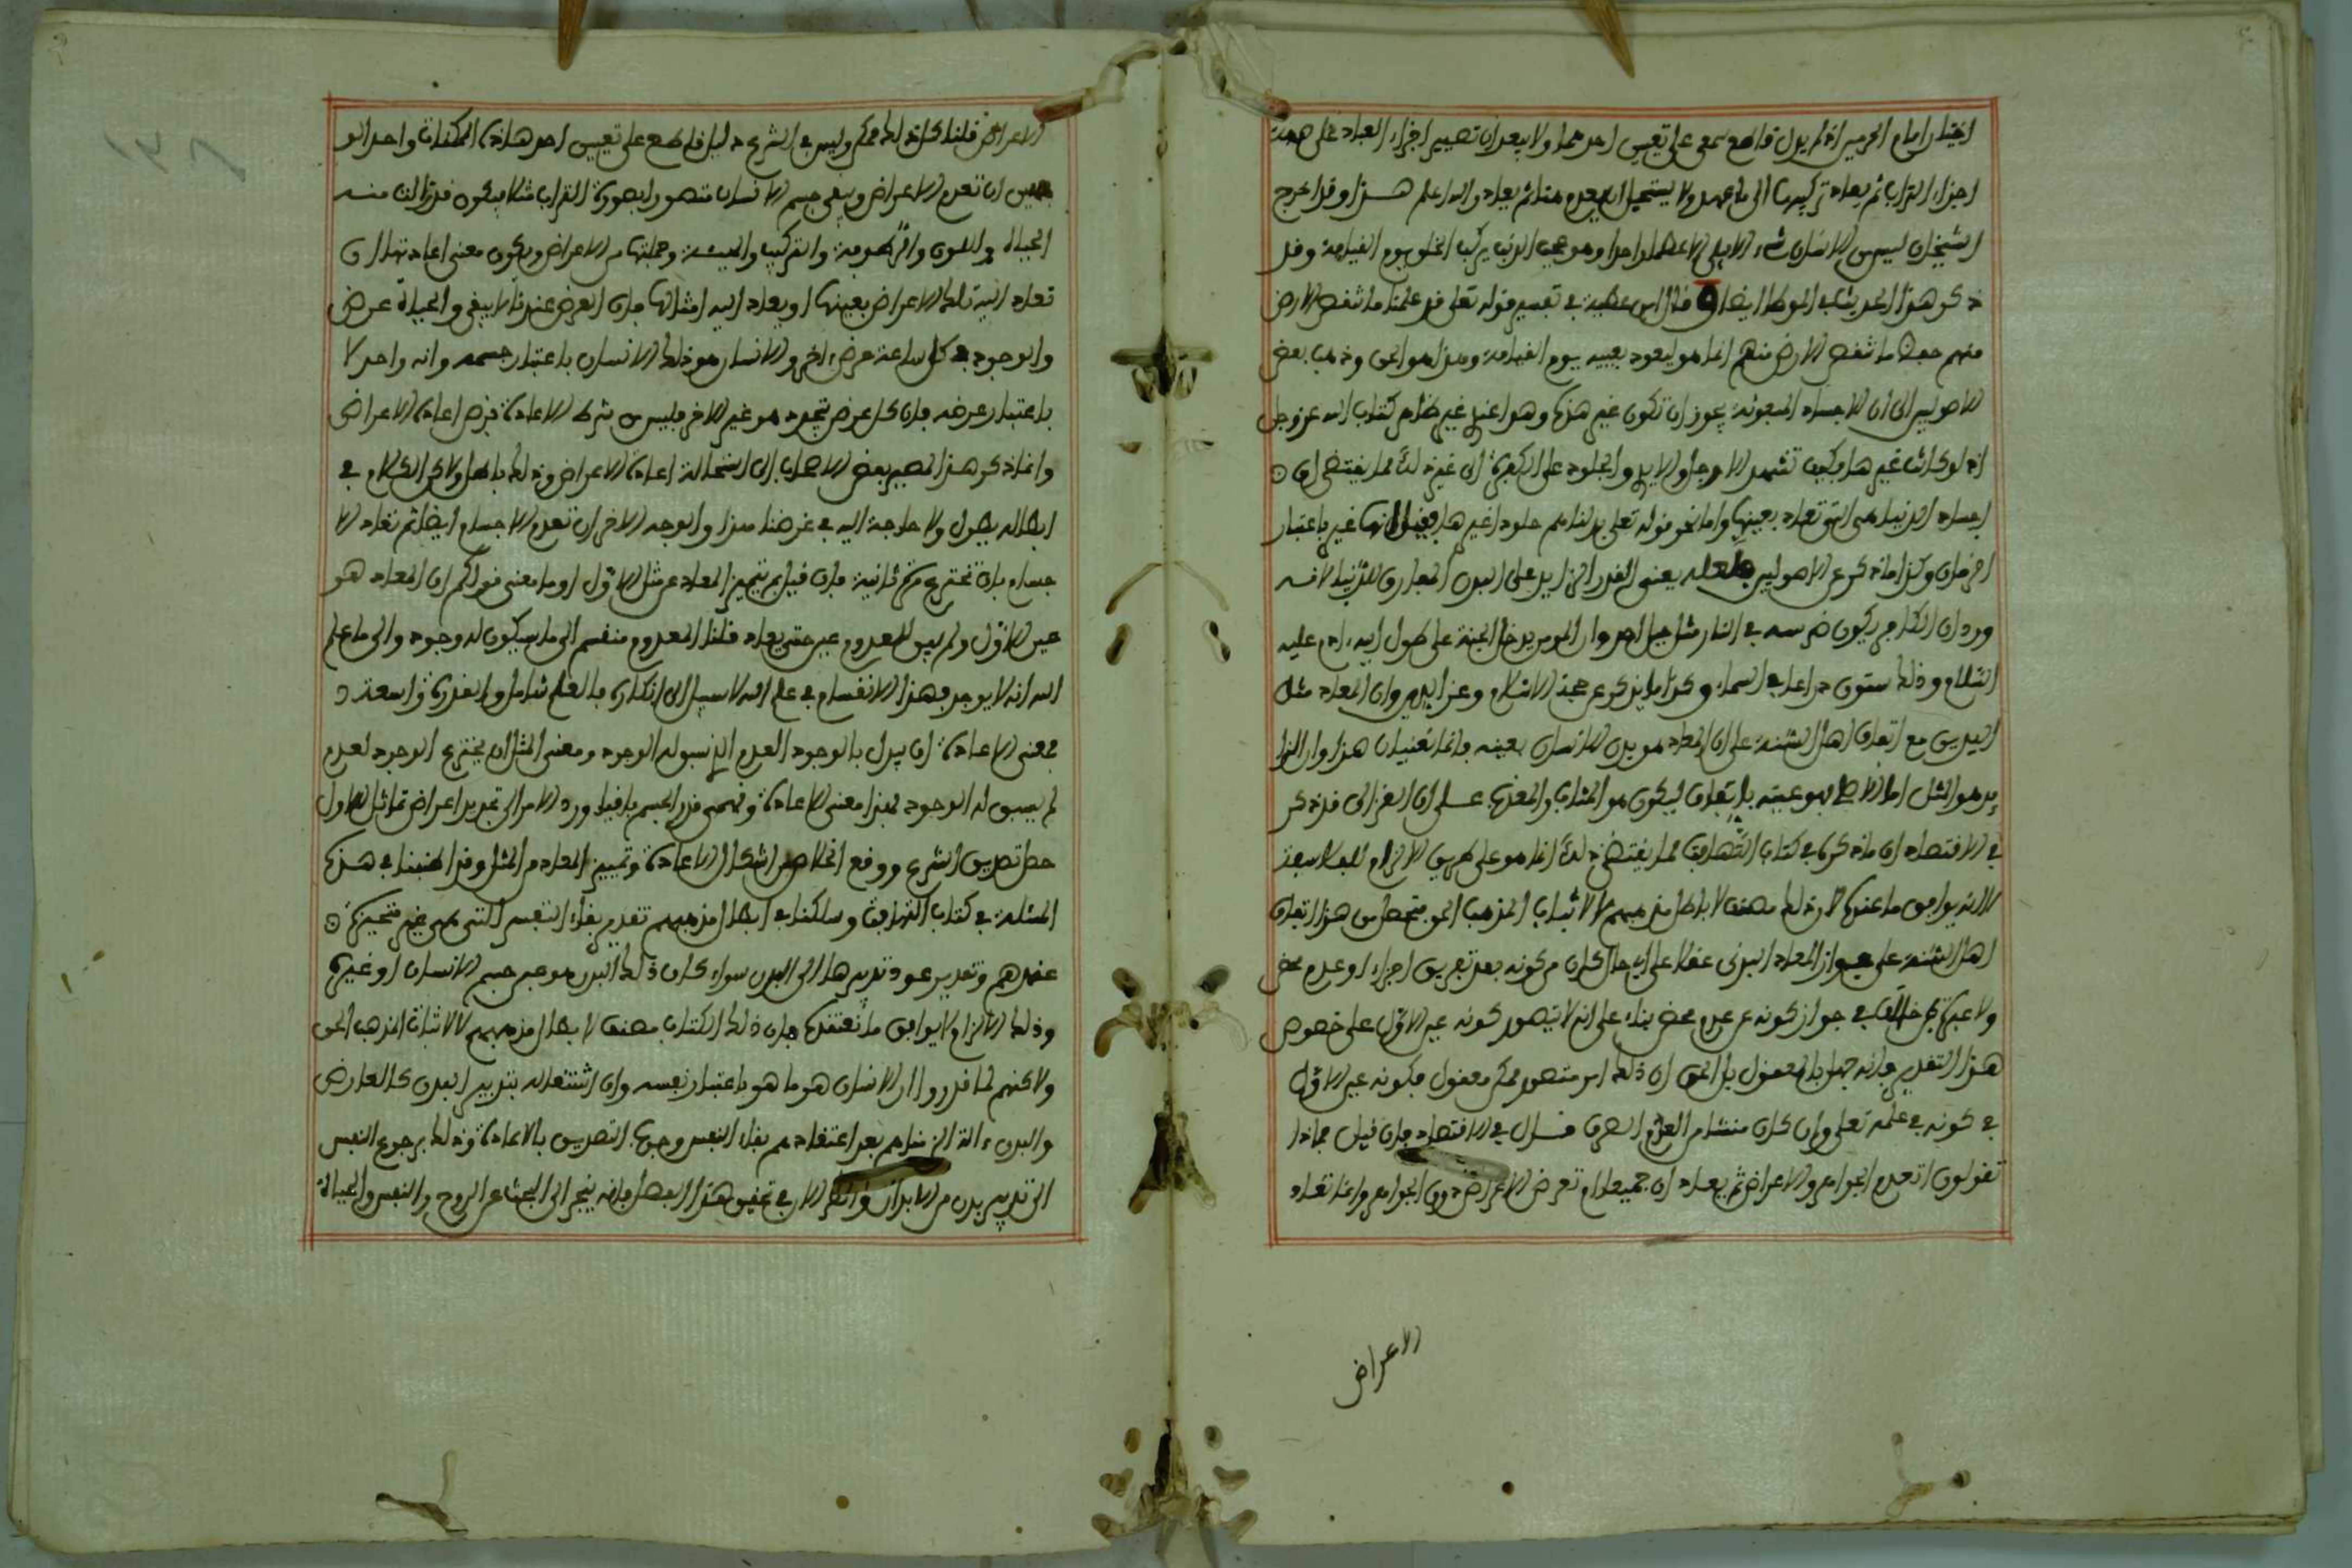 اختار امام الحرمين انه لم يدل قاطع سمعي على تعيين احدهما ولا يبعد ان تصير اجزاء العباد على صفة
اجزاء التراب ثم يعاد تركيبها الى ما عهد ولا يستحيل ان يعدم منها ثم يعاد والله اعلم هــذا وقد اخرج
الشيخان ليس من الانسان شيء الا يبلى الا عظما واحدا وهو عجب الذنب يركب الخلق يوم القيامة وقد
ذكر هذا الحديث في الموطا ايضا قال ابن عطية في تفسير قوله تعلى قد علمنا ما تنقص الارض
منهم حفظ ما تنقص الارض منهم انما هو ليعود بعينه يوم القيامة وهذا هو الحق وذهب بعض
الاصوليين الى ان الاجساد المبعوثة يجوز ان تكون غير هذه وهو عندي غير ظاهر كتاب الله عز وجل
اذ لو كانت غيرها فكيف تشهد الارجل والايد والجلود على الكفرة الى غير ذلك مما يقتضي ان
اجساد الدنيا هي التي تعاد بعينها واما نحو قوله تعلى بدلناهم جلودا غيرها فقيل انها غير باعتبار
اخر فان وكذا ما ذكر عن الاصوليين فلعله يعني القدر الزايد على البدن المفارق للدنيا لانه
ورد ان الكافر يكون ضرسه في النار مثل جبل احد وان المومن يدخل الجنة على طول ابيه ادم عليه
السلام وذلك ستون ذراعا في السماء وكذا ما يذكر عن حجة الاسلام وعز الدين وان المعاد مثل
البدن مع اتفاق اهل السنة على ان المعاد هو بدن الانسان بعينه فانما تعنيان هذا وان الزا
يد هو المثل اما الاصل فهو عينه باتفاق ليكون هو المثاب والمعذب عــلى ان الغزالي قد ذكر
في الاقتصاد ان ما ذكره في كتاب التهافت مما يقتضي ذلك انما هو على طريق الالزام للفلاسفة
لا انه يوافق ما عنده لان ذلك مصنف لابطال مذهبهم لا لاثبات المذهب الحق فتحصل من هذا اتفاق
اهل السنة على جواز المعاد البدني عقلا على اي حال كان من كونه بعد تفريق اجزاء او عدم محض
ولا عبرة بمن خالف في جواز كونه عن عدم محض بناء على انه لا يتصور كونه عين الاول على خصوص
هذا التقدير فانه جهل بالمعقول بل الحق ان ذلك امر متصور ممكن معقول فكونه عين الاول
في كونه في علمه تعلى وان كان منشا من العدم الصرف قــال في الاقتصاد فان قيل فماذا
تقولون اتعدم الجواهر والاعراض ثم يعاد ان جميعا ام تعدم الاعراض دون الجواهر وانما تعاد
الاعراض
الاعراض قلنا كل ذلك ممكن وليس في الشرع دليل قاطع على تعيين احد هاذه الممكنات واحد الو
جهين ان تعدم الاعراض ويبقى جسم الانسان متصورا بصورة التراب مثلا فيكون قد زالت منه
الحياة واللون والرطوبة والتركيب والهيئة وجملتها من الاعراض ويكون معنى اعادتها ان
تعاد اليه تلك الاعراض بعينها او يعاد اليه امثالها فان العرض عندنا لا يبقى والحياة عرض
والموجود في كل ساعة عرض اخر والانسان هو ذلك الانسان باعتبار جسمه وانه واحد لا
باعتبار عرضه فان كل عرض يتجدد هو غير الاخر فليس من شرط الاعادة فرض اعادة الاعراض
وانما ذكر هذا لمصير بعض الاصحاب الى استحالة اعادة الاعراض وذلك باطل ولاكن الكلام في
ابطاله يطول ولا حاجة اليه في غرضنا هذا والوجه الاخر ان تعدم الاجسام ايضا ثم تعاد الا
جسام بان تخترع مرة ثانية فان قيل بم يتميز المعاد عن مثل الاول او ما معنى قولكم ان المعاد هو
عين الاول ولم يبق للمعدوم عين حتى يعاد قلنا المعدوم منقسم الى ما سبق له وجود والى ما علم
الله انه لا يوجد فهذا الانقسام في علم الله لا سبيل الى انكاره فالعلم شامل والقدرة واسعة د
فمعنى الاعادة ان يبدل بالوجود العدم الذي سبق له الوجود ومعنى المثل ان يخترع الوجود لعدم
لم يسبق له الوجود فهذا معنى الاعادة ومهما قدر الجسم باقيا ورد الامر الى تجديد اعراض تماثل الاول
حصل تصديق الشرع ووقع الخلاص من اشكال الاعادة وتمييز المعاد من المثل وقد اطنبنا في هذه
المسئلة في كتاب التهافت وسلكنا في ابطال مذهبهم تقدير بقاء النفس التي هي غير متحيزة
عندهم وتقدير عود تدبيرها الى البدن سواء كان ذلك البدن هو عين جسم الانسان او غيره
وذلك الالزام لا يوافق ما نعتقده فان ذلك الكتاب مصنف لابطال مذهبهم لا لاثبات المذهب الحق
ولاكنهم لما قدروا ان الانسان هو ما هو باعتبار نفسه وان اشتغاله بتدبير البدن كالعارض
والبدن ءالة الزمناهم بعد اعتقادهم بقاء النفس وجوب التصديق بالاعادة وذلك برجوع النفس
الى تدبير بدن من الابدان والنظر الان في تحقيق هذا الفصل فانه ينجر الى البحث عن الروح والنفس والحياة